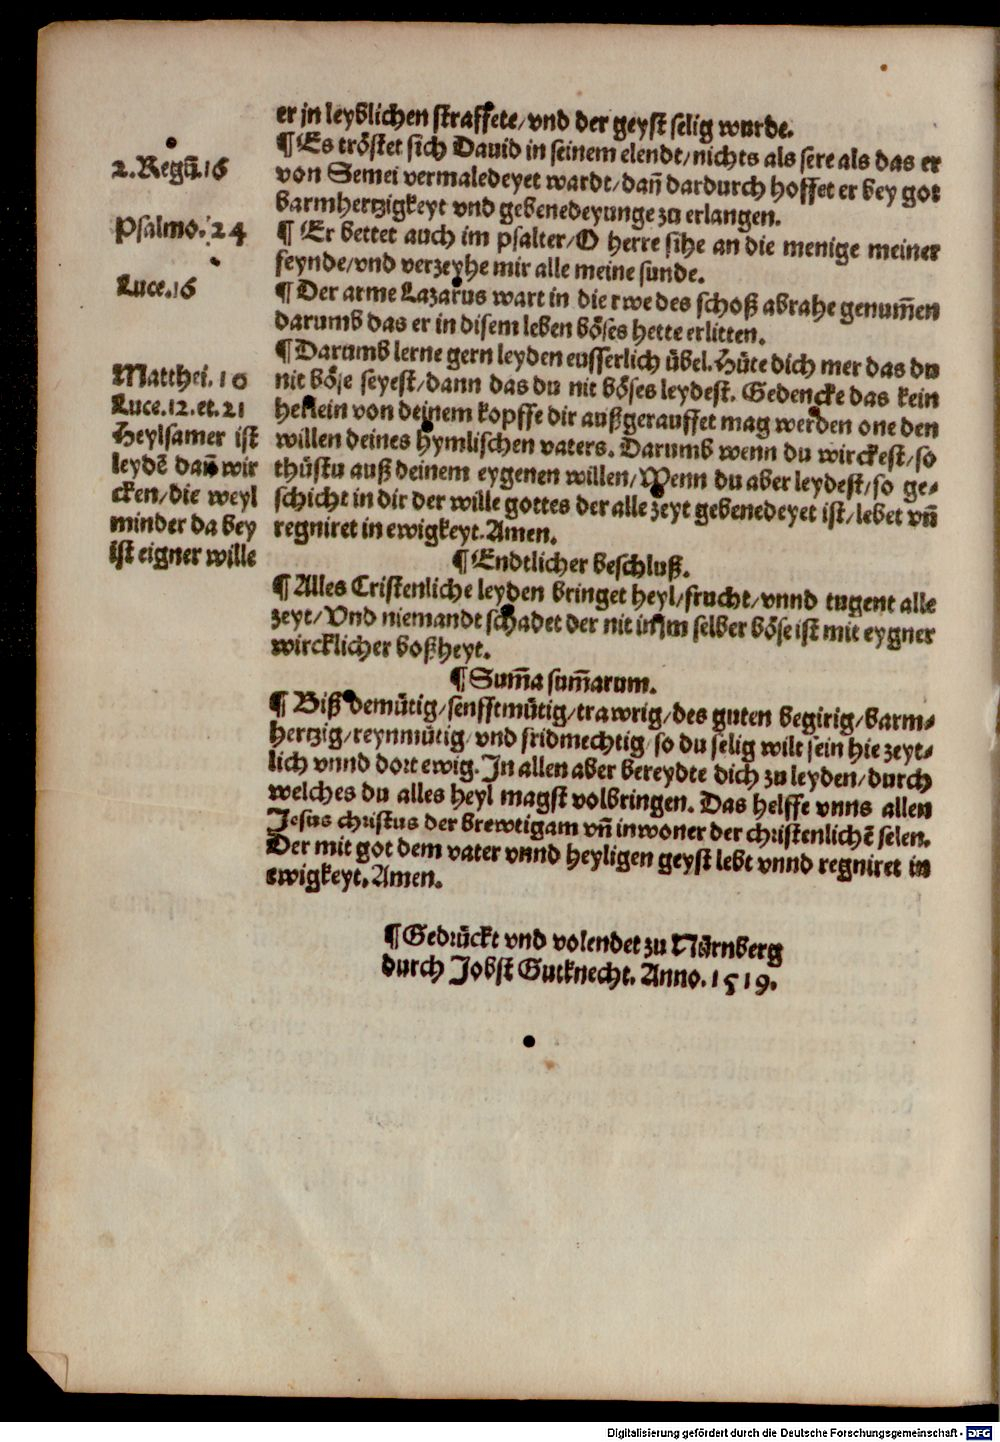 er jn leyblichen straffete/vnd der geyst selig wurde.
¶ Es tröstet sich Dauid in seinem elendt/nichts als sere als das er
2. Regū.16
von Semei vermaledeyet wardt/dañ dardurch hoffet er bey got
barmhertzigkeyt vnd gebenedeyunge zu erlangen.
Psalmo. 24
¶ Er bettet auch im psalter/O herre sihe an die menige meiner
feynde/vnd verzeyhe mir alle meine sunde.
Luce.16
¶ Der arme Lazarus wart in die rwe des schoß abrahe genum̄en
darumb das er in disem leben böses hette erlitten.
¶ Darumb lerne gern leyden eusserlich übel. Hüte dich mer das du
Matthei. 10
nit böse seyest/dann das du nit böses leydest. Gedencke das kein
Luce.12.et.21
herlein von deinem kopffe dir außgerauffet mag werden one den
Heylsamer ist
willen deines hymlischen vaters. Darumb wenn du wirckest/so
leydē dañ wir
thüstu auß deinem eygenen willen/Wenn du aber leydest/so ge-
cken/die weyl
schicht in dir der wille gottes der alle zeyt gebenedeyet ist/lebet vñ
minder da bey
regniret in ewigkeyt. Amen.
ist eigner wille
¶ Endtlicher beschluß.
¶ Alles Cristenliche leyden bringet heyl/frucht/vnnd tugent alle
zeyt/Vnd niemandt schadet der nit im selber böse ist mit eygner
wircklicher boßheyt.
¶ Sum̄a sum̄arum.
¶ Biß demütig/senfftmütig/trawrig/des guten begirig/barm-
hertzig/reynmütig/vnd fridmechtig/so du selig wilt sein hie zeyt-
lich vnnd dort ewig. In allen aber bereydte dich zu leyden/durch
welches du alles heyl magst volbringen. Das helffe vnns allen
Jesus christus der brewtigam vñ inwoner der christenlichē selen.
Der mit got dem vater vnnd heyligen geyst lebt vnnd regniret in
ewigkeyt. Amen.
¶ Gedrückt vnd volendet zu Nürnberg
durch Jobst Gutknecht. Anno. 1519.
Digitalisierung gefördert durch die Deutsche Forschungsgemeinschaft - DFG